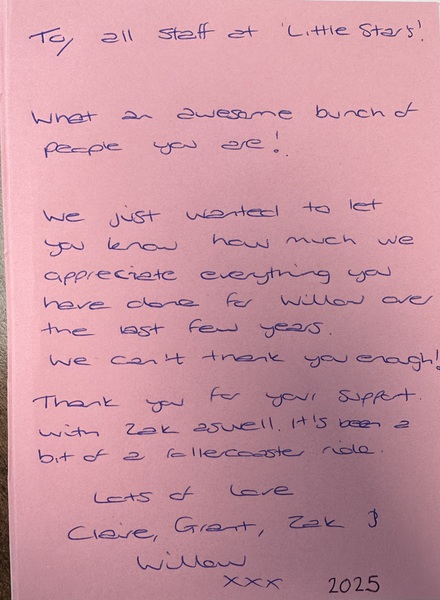 To, all staff at 'Little Stars'.
What an awesome bunch of
people you are!
We just wanted to let
you know how much we
appreciate everything you
have done for Willow over
the last few years.
We can't thank you enough!
Thank you for your support.
with Zak aswell. It's been a
bit of a rollercoaster ride.
Lots of love
Claire, Grant, Zak &
Willow
xxx 2025